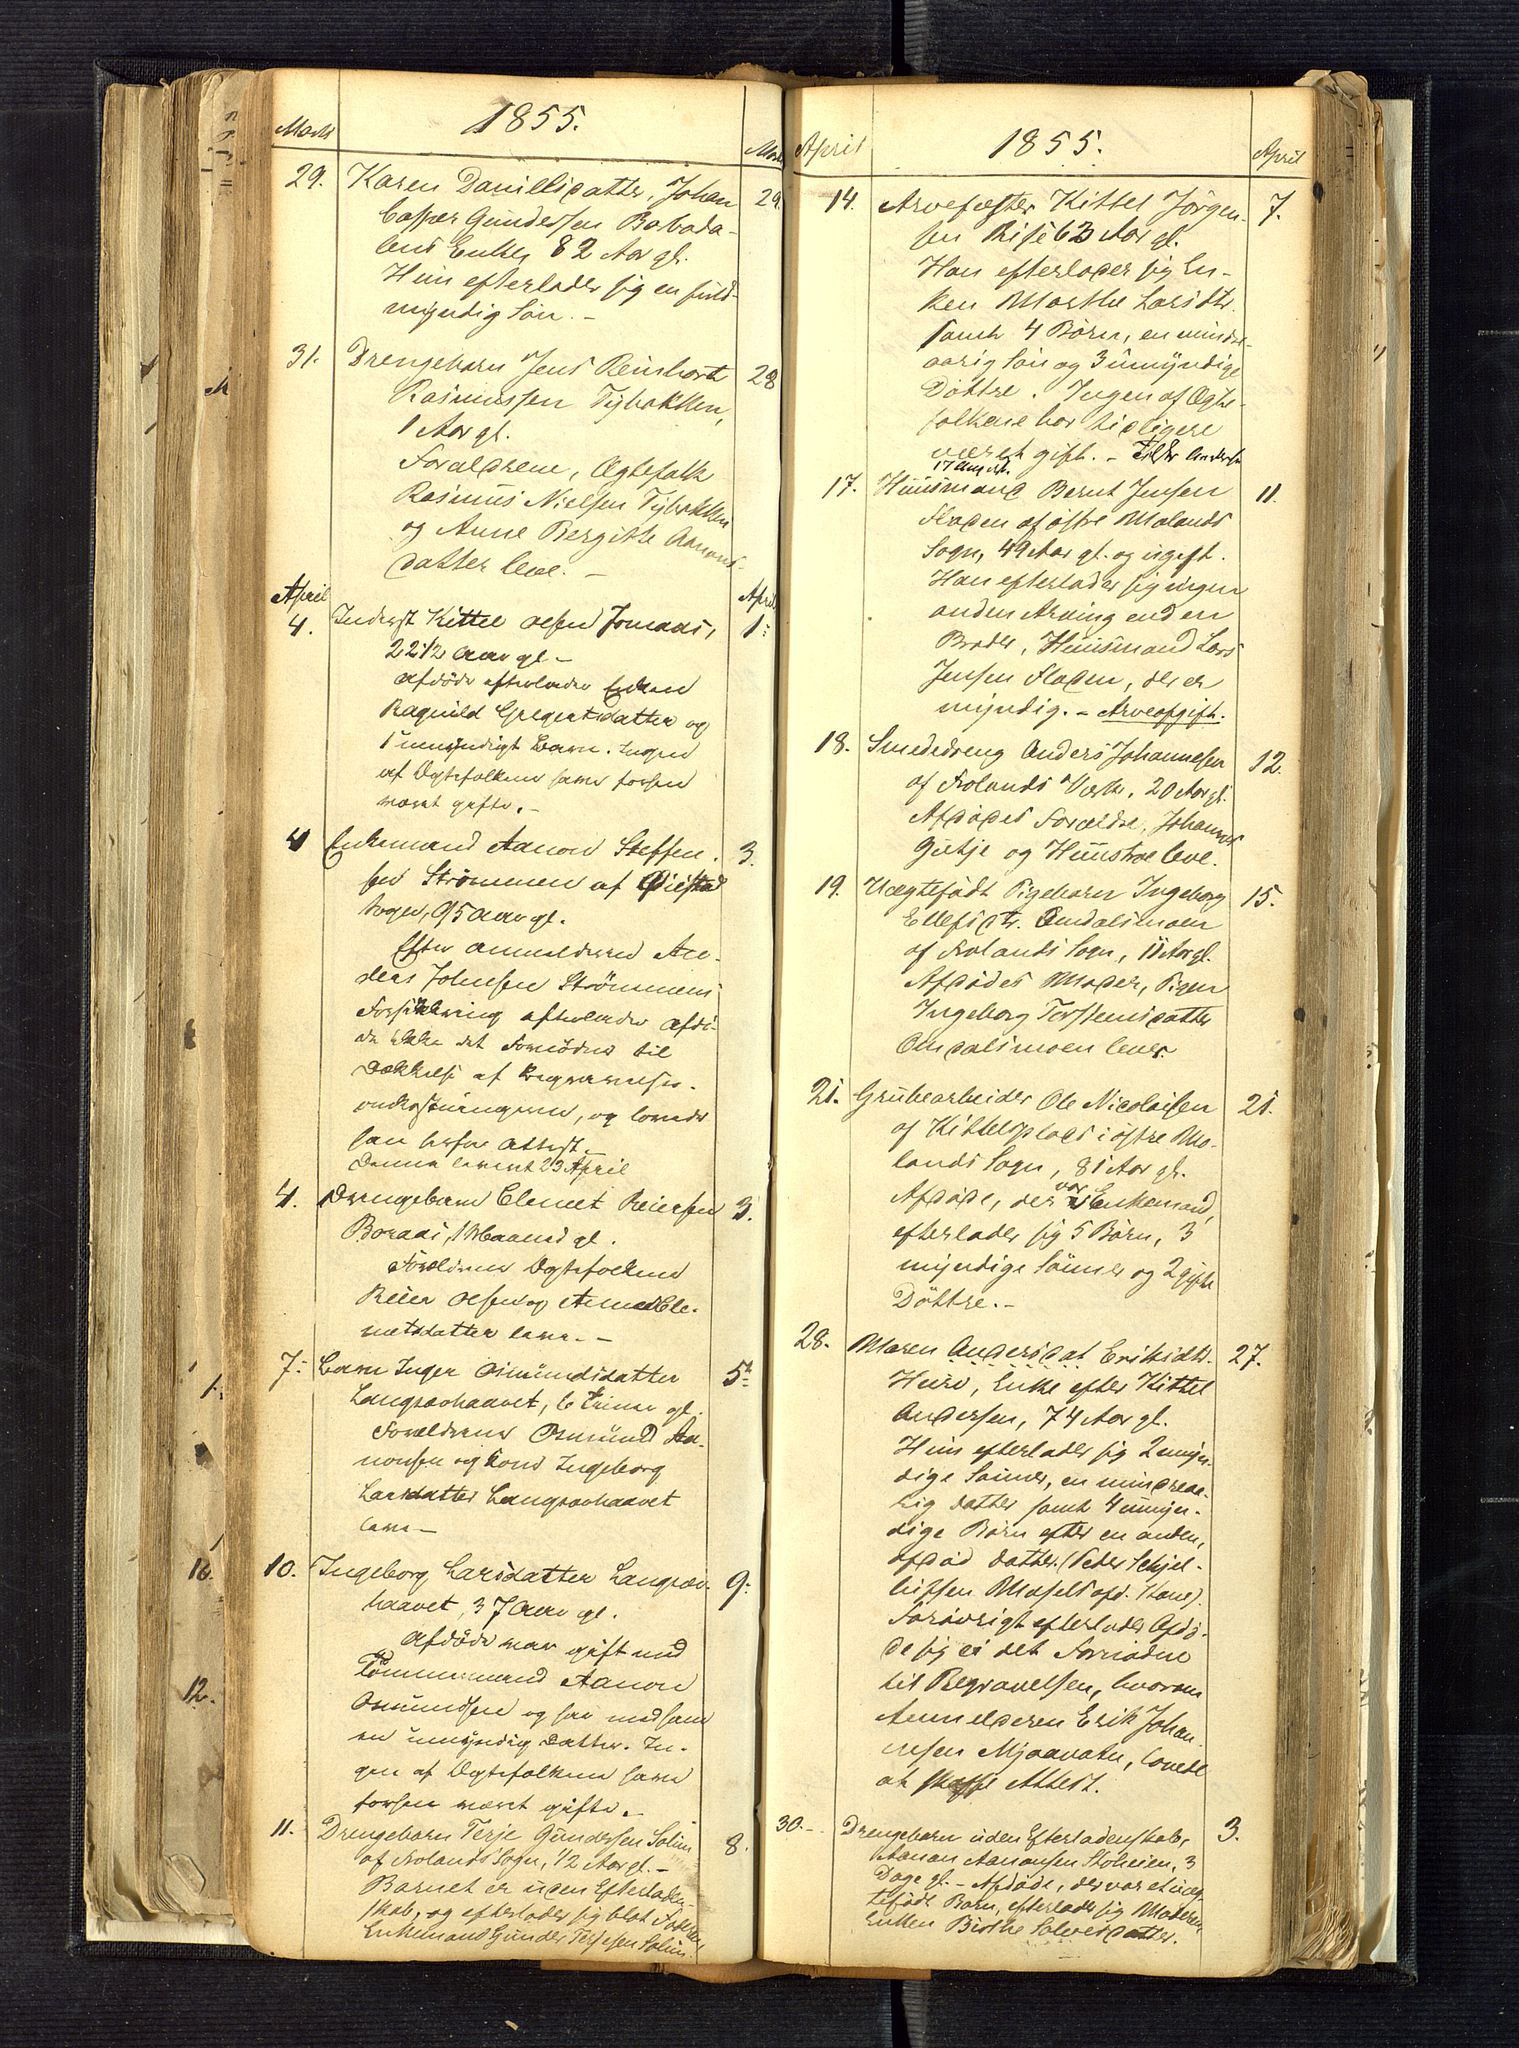 Marts 1855. Marts
29. Karen Danillsdatter, Johan 29.
Casper Gundersen Barbada-
lens Enke, 82 Aar gl.
Hun efterlader sig en fuld-
myndig Søn. -
31. Drengebarn Jens Reinhart 28
Rasmussen Tybakken,
1 Aar gl.
Forældrene, Ægtefolk
Rasmus Nielsen Tybakken
og Anne Bergitte Aanons-
datter leve. -
April April
4. Inderst Kittel Olsen Jomaas, 1:
22 1/2 Aar gl -
Afdøde efterlader Enken
Ragnild Gregertsdatter og
1 umyndigt Barn. Ingen
af Ægtefolkene have forhen
været gifte. -
4 Enkemand Aanon Steffen- 3.
sen Strømmen af Øiestad
Sogn, 95 Aar gl.
Efter Anmelderen An-
ders Johnsen Strømmens
Forsikkring efterlader Afdø-
de ikke det Fornødne til
Dækkelse af Begravelses-
omkostningerne, og lovede
han herfor Attest. -
Denne leveret 23 April
4. Drengebarn Clemet Reiersen 3.
Boraas, 1 Maaned gl.
Forældrene Ægtefolkene
Reier Olsen og Anne Cle-
metsdatter leve. -
7: Barn Inger Osmundsdatter 5te
Langsævhaavet, 6 Timer gl.
Forældrene Osmund Aa-
nonsen og Kone Ingeborg
Larsdatter Langsævhaavet
leve -
10. Ingeborg Larsdatter Langsæv- 9:
haavet, 37 Aar gl.
Afdøde var gift med
Tømmermand Aanon
Osmundsen og har med ham
en umyndig Datter. In-
gen af Ægtefolkene have
forhen været gifte. -
11. Drengebarn Terje Gundersen Solim 8.
af Frolands Sogn, 1/2 Aar gl. -
Barnet er uden Efterladen-
skab, og efterlader sig blot Faderen
Enkemand Gunder Terjesen Solim
April 1855. April
14. Arvefæster Kittel Jørgen- 7.
sen Rise 63 Aar gl.
Han efterlader sig En-
ken Marthe Larsdtr.
samt 4 Børn, en mindre-
aarig Søn og 3 umyndige
Døttre. Ingen af Ægte-
folkene har tidligere
været gift. -
17. Huusmand Bernt Jensen 11.
Fladen af østre Molands
Sogn, 49 Aar gl. og ugift.
Han efterlader sig ingen
anden Arving end en
Broder, Huusmand Lars
Jensen Fladen, der er
myndig. - Arveafgift.
18. Smededreng Anders Johannesen 12.
af Frolands Værk, 20 Aar gl.
Afdødes Forældre, Johannes
Gutje og Hustroe leve.
19. Uægtefødt Pigebarn Ingeborg 15.
Ellefsdtr. Omdalsmoen
af Frolands Sogn, 11 Aar gl.
Afdødes Moder, Pigen
Ingeborg Torstensdatter
Omdalsmoen lever.
21. Grubearbeider Ole Nicolaisen 21.
af Kittelsplads i østre Mo-
lands Sogn, 81 Aar gl.
Afdøde, der var Enkemand,
efterlader sig 5 Børn, 3
myndige Sønner og 2 gifte
Døttre. -
28. Maren Andersdat Eriksdtr. 27.
Huro, Enke efter Kittel
Andersen, 74 Aar gl.
Hun efterlader sig 2 myn-
dige Sønner, en mindreaa-
rig Datter samt 4 umyn-
dige Børn efter en anden,
afdød Datter.
Forøvrigt efterlader Afdø-
de sig ei det Fornødne
til Begravelsen, hvorom
Anmelderen Erik Johan-
nesen Mjaavatn, lovede
at skaffe Attest.
30. - Drengebarn uden Efterladenskab, 3.
Aanon Aanonsen Stoheien, 3
Dage gl. - Afdøde, der var et uæg-
tefødt Barn, efterlader sig Moderen,
Enken Birthe Salvesdatter.